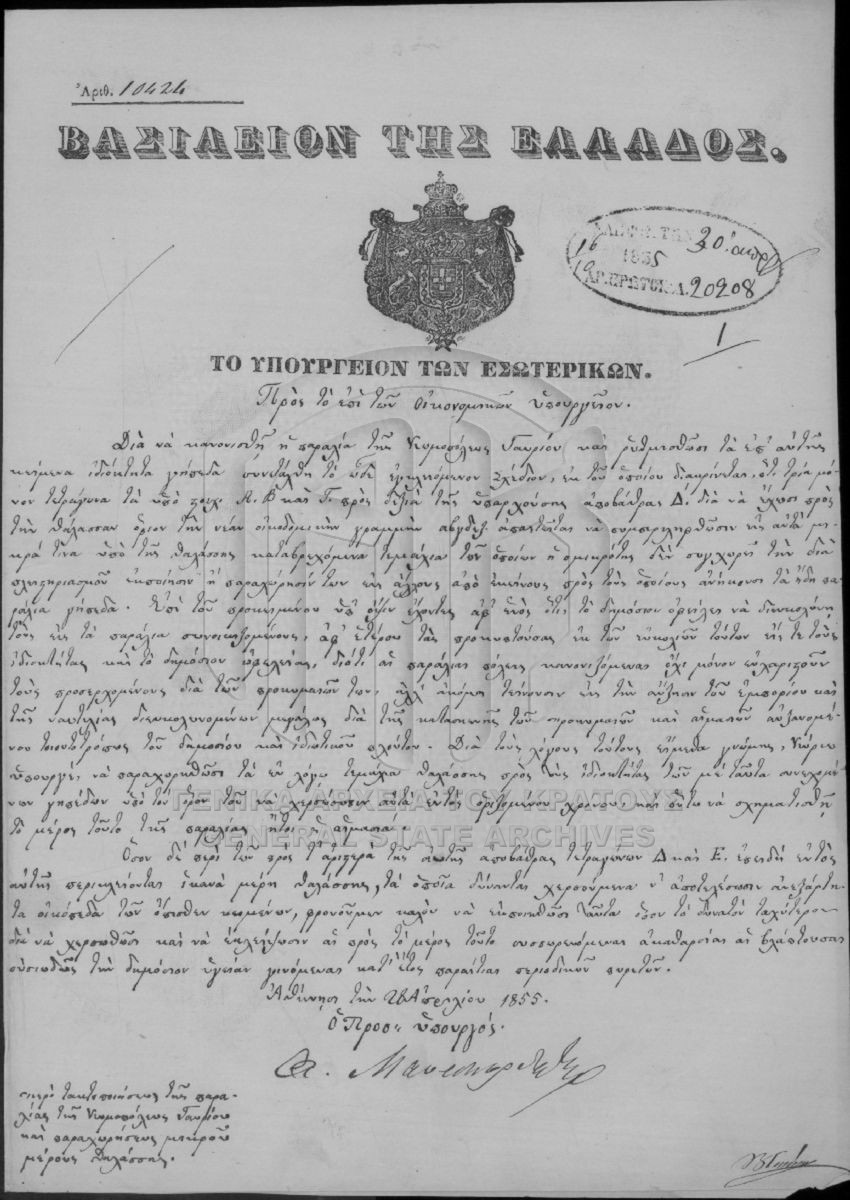 Ἀριθ. 10424
ΒΑΣΙΛΕΙΟΝ ΤΗΣ ΕΛΛΑΔΟΣ.
30 ἀπρ
1855
ΑΡ. ΠΡΩΤΟΚΟΛ. 20208
1
ΤΟ ΥΠΟΥΡΓΕΙΟΝ ΤΩΝ ΕΣΩΤΕΡΙΚΩΝ.
Πρὸς τὸ ἐπὶ τῶν Οἰκονομικῶν ὑπουργεῖον.
Διὰ νὰ κανονισθῇ ἡ παραλία τῆς Κωμοπόλεως Γαυρίου καὶ ῥυθμισθῶσι τὰ ἐπ' αὐτῆς
κείμενα ἰδιόκτητα γήπεδα συνετάχθη τὸ ὧδε ἐγκλειόμενον Σχέδιον, ἐκ τοῦ ὁποίου διακρίνεται, ὅτι τρία μό-
νον τετράγωνα τὰ ὑπὸ στοιχ. Α. Β. καὶ Γ. πρὸς δεξιὰ τῆς ὑπαρχούσης ἀποβάθρας Δ. διὰ νὰ ἔχωσι πρὸς
τὴν θάλασσαν ὅριον τὴν νέαν οἰκοδομικὴν γραμμὴν αβγδεζ. ἀπαιτεῖται νὰ συμπεριληφθῶσιν εἰς αὐτὰ μι-
κρά τινα ὑπὸ τῆς θαλάσσης καταβρεχόμενα τεμάχια τῶν ὁποίων ἡ σμικρότης δὲν συγχωρεῖ τὴν διὰ
πλειστηριασμοῦ ἐκποίησιν ἢ παραχώρησίν των εἰς ἄλλους ἀπὸ ἐκείνους πρὸς τοὺς ὁποίους ἀνήκουσι τὰ ἤδη πα-
ράλια γήπεδα. Ἐπὶ τοῦ προκειμένου ὑπ' ὄψιν ἔχοντες ἀφ' ἑνὸς ὅτι τὸ δημόσιον ὀφείλει νὰ διευκολύνῃ
τοὺς εἰς τὰ παράλια συνοικιζομένους, ἀφ' ἑτέρου τὰς προκυπτούσας ἐκ τῶν εὐκολιῶν τούτων εἴς τε τοὺς
ἰδιοκτήτας καὶ τὸ δημόσιον ὠφελείας, διότι αἱ παράλιαι πόλεις κανονιζόμεναι ὄχι μόνον εὐχαριστοῦν
τοὺς προσερχομένους διὰ τῶν προκυμαιῶν των, ἀλλ' ἀκόμη τείνουσιν εἰς τὴν αὔξησιν τοῦ ἐμπορίου καὶ
τῆς ναυτιλίας διευκολυνομένων μεγάλως διὰ τῆς κατασκευῆς τῶν προκυμαιῶν καὶ αἱμασιῶν αὐξανομέ-
νου τοιουτοτρόπως τοῦ δημοσίου καὶ ἰδιωτικοῦ πλούτου. Διὰ τοὺς λόγους τούτους εἴμεθα γνώμης, Κύριε
ὑπουργέ, νὰ παραχωρηθῶσι τὰ ἐν λόγῳ τεμάχια θαλάσσης πρὸς τοὺς ἰδιοκτήτας τῶν μὲ ταῦτα συνεχομέ-
νων γηπέδων ὑπὸ τὸν ὅρον τοῦ νὰ χερσώσωσιν αὐτὰ ἐντὸς ὁριζομένου χρόνου, καὶ οὕτω νὰ σχηματισθῇ
τὸ μέρος τοῦτο τῆς παραλίας ἤτοι ἡ αἱμασιά.
Ὅσον δὲ περὶ τῶν πρὸς τ' ἀριστερὰ τῆς αὐτῆς ἀποβάθρας τετραγώνων Δ καὶ Ε. ἐπειδὴ ἐντὸς
αὐτῆς περικλείονται ἱκανὰ μέρη θαλάσσης, τὰ ὁποῖα δύνανται χερσούμενα ν' ἀποτελέσωσιν ἀνεξάρτη-
τα οἰκόπεδα τῶν ὄπισθεν κειμένων, φρονοῦμεν καλὸν νὰ ἐκποιηθῶσι ταῦτα ὅσον τὸ δυνατὸν ταχύτερον
διὰ νὰ χερσωθῶσι καὶ νὰ ἐκλείψωσιν αἱ πρὸς τὸ μέρος τοῦτο συσσωρευόμεναι ἀκαθαρσίαι αἱ βλάπτουσαι
οὐσιωδῶς τὴν δημόσιον ὑγείαν γινόμεναι κατ' ἔτος παραίτιαι περιοδικῶν πυρετῶν.
Ἀθήνησι τὴν 26 Ἀπριλίου 1855.
Ὁ Προσ. ὑπουργός.
περὶ τακτοποιήσεως τῆς παρα-
λίας τῆς Κωμοπόλεως Γαυρίου
καὶ παραχωρήσεως μικροῦ
μέρους θαλάσσης.
ΓΕΝΙΚΑ ΑΡΧΕΙΑ ΤΟΥ ΚΡΑΤΟΥΣ
GENERAL STATE ARCHIVES